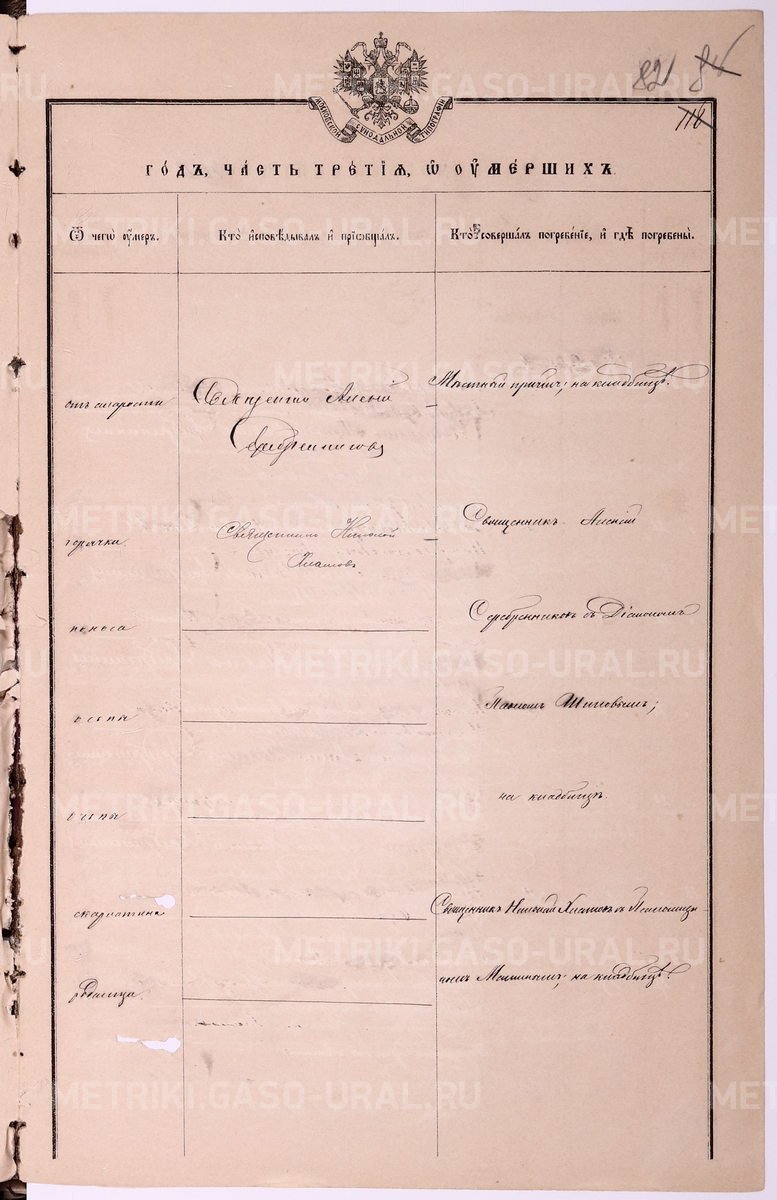 82 84
116
МОСКОВСКОЙ СѴНОДАЛЬНОЙ ТИПОГРАФІИ
ГО́ДЪ, ЧА́СТЬ ТРЕ́ТІѦ, Ѡ҆ ОУ҆МЕ́РШИХЪ.
Ѿ чегѡ̀ оу҆́меръ.
Кто̀ и҆сповѣ́дывалъ и҆ прїѻбща́лъ.
Кто̀ соверша́лъ погребе́нїе, и҆ гдѣ̀ погребены̀.
отъ старости
Священник Алексій
Серебренниковъ
Мѣстный причтъ; на кладбищѣ.
горячки
Священникъ Николай
Хлатовъ
Священникъ Алексій
поноса
Серебренниковъ съ Діакономъ
оспы
Шиповымъ;
оспы
на кладбищѣ.
скарлатина
Священникъ Николай Хлатовъ съ Псаломщи-
родимца
комъ Мамин­ымъ; на кладбищѣ.
METRIKI.GASO-URAL.RU